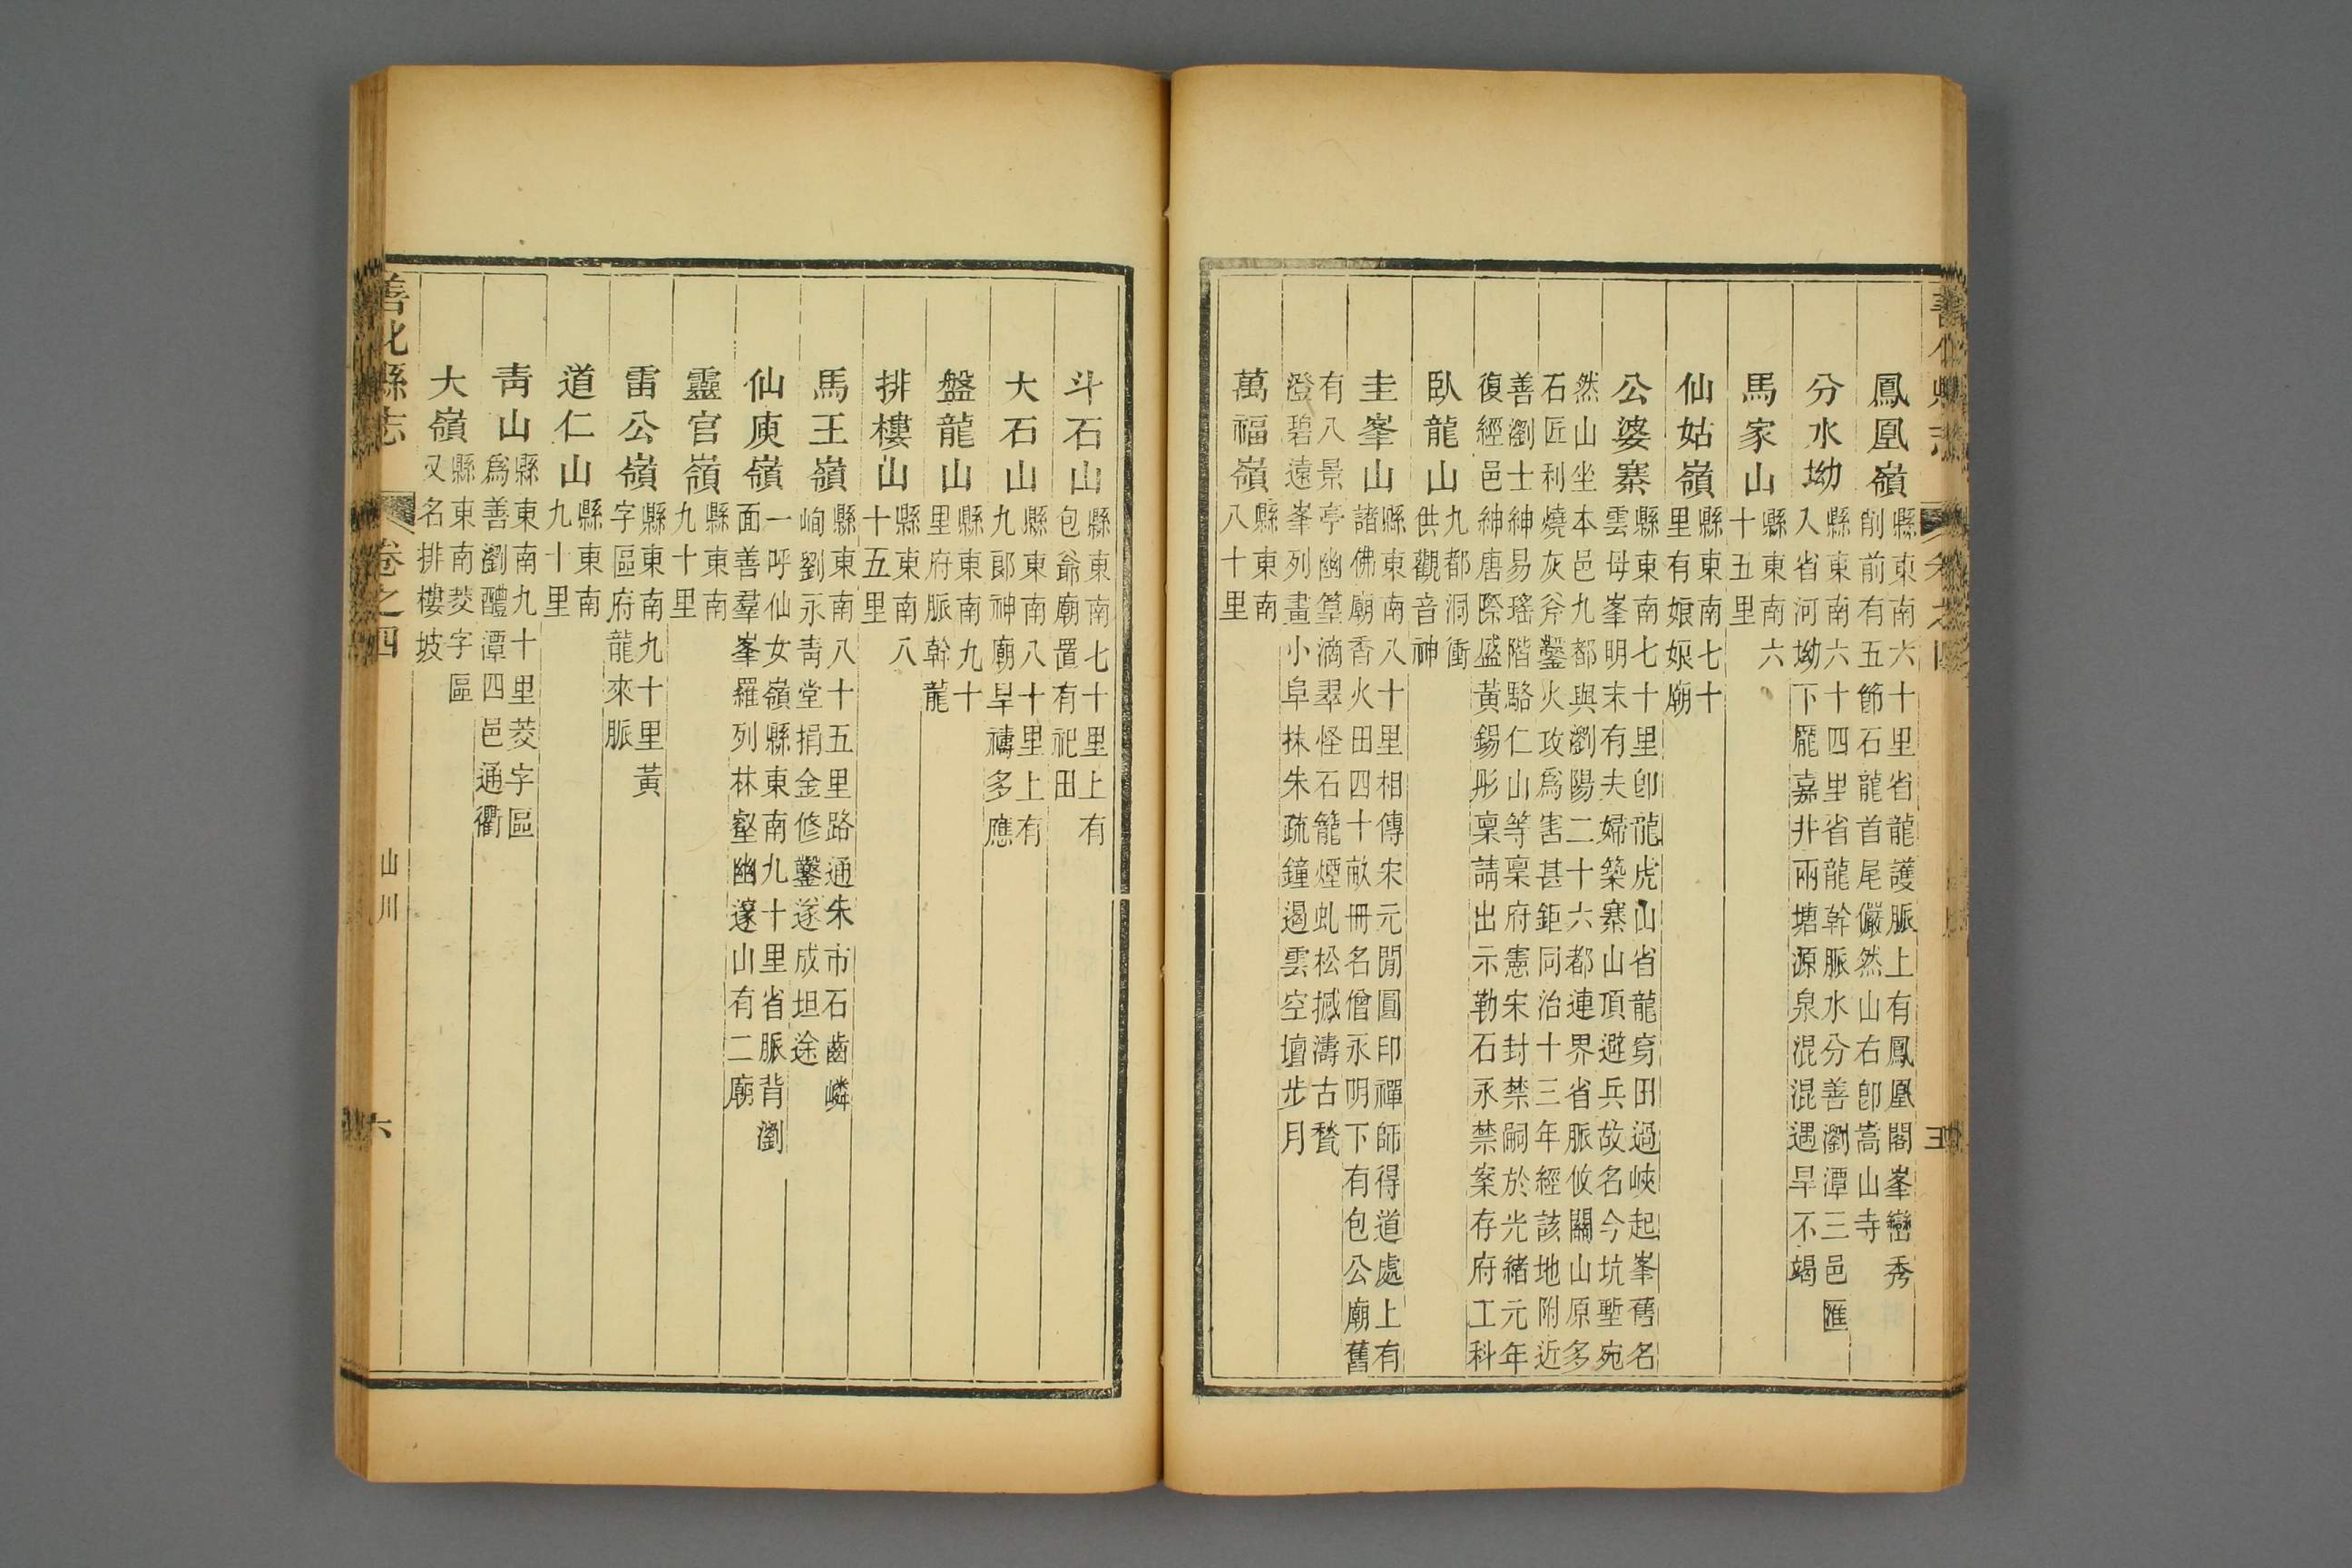 善化縣志
卷之四
五
鳳凰嶺縣東南六十里省龍護脈上有鳳凰閣峯巒秀
削前有五節石龍首尾儼然山右卽嵩山寺
分水坳縣東南六十四里省龍幹脈水分善瀏潭三邑匯
入省河坳下龎嘉非兩塘源泉混混遇旱不竭
馬家山縣東南六
十五里
仙姑嶺縣東南七十
里有娘娘廟
公婆寨縣東南七十里卽龍虎山省龍穿田過峽起峯舊名
雲母峯明末有夫婦築寨山頂避兵故名今坑塹宛
然山坐本邑九都與瀏陽二十六都連界省脈攸關山原多
石匠利燒灰斧鑿火攻爲害甚鉅同治十三年經該地附近
善瀏士紳易瑤階駱仁山等稟府憲宋封禁嗣於光緒元年
復經邑紳唐際盛黃錫彤稟請出示勒石永禁案存府工科
臥龍山九都洞衝
供觀音神
圭峯山縣東南八十里相傳宋元閒圓印禪師得道處上有
諸佛廟香火田四十畝冊名僧永明下有包公廟舊
有八景亭幽篁滴翠怪石籠煙虬松撼濤古甃
澄碧遠峯列畫小阜抹朱疏鐘遏雲空壇步月
萬福嶺縣東南
八十里
斗石山縣東南七十里上有
包爺廟置有祀田
大石山縣東南八十里上有
九郞神廟旱禱多應
盤龍山縣東南九十
里府脈幹龍
排樓山縣東南八
十五里
馬王嶺縣東南八十五里路通朱市石齒嶙
峋劉永靑堂捐金修鑿遂成坦途
仙庾嶺一呼仙女嶺縣東南九十里省脈背瀏
面善羣峯羅列林壑幽邃山有二廟
靈官嶺縣東南
九十里
雷公嶺縣東南九十里黃
字區府龍來脈
道仁山縣東南
九十里
靑山縣東南九十里菱字區
爲善瀏醴潭四邑通衢
大嶺縣東南菱字區
又名排樓坡
善化縣志
卷之四
山川
六